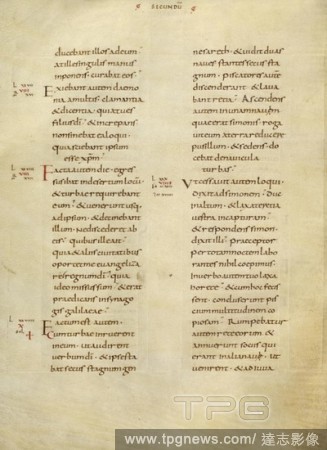 SECUNDŪ
ducebant illos ad eum ·
at ille singulis manus
inponens · curabat eos ·
Exiebant autem daemo
nia a multis · clamantia
& dicentia · quia tu es
filius dī · & increpans
non sinebat ea loqui ·
quia sciebant ipsum
esse xpm̄
Facta autem die · egres
sus ibat in desertum locum
& turbae requirebant
eum · & venerunt usq·
ad ipsum · & detinebant
illum · ne discederet ab
eis · quibus ille ait ·
quia & aliis civitatibus
oportet me evangeliza
re regnum dī · quia
ideo missus sum · & erat
praedicans in synago
gis galilaeae ·
Factum est autem
cum turbae inruerent
in eum · ut audirent
verbum dī · & ipse sta
bat secus stagnum gen
nesareth · & vidit duas
naves stantes secus sta
gnum · Piscatores autē
discenderant · & lava
bant retia · Ascendens
autem in unam navē
quae erat simonis · roga
vit eum a terra reducere
pusillum · & sedens · do
cebat de navicula
turbas
Ut cessavit autem loqui ·
dixit ad simonem · Duc
in altum · & laxate retia
vestra in capturam ·
& respondens simon ·
dixit illi · Praeceptor
per totam noctem labo
rantes · nihil coepimus
in verbo autem tuo laxa
bo rete · & cum hoc fecis
sent · concluserunt pis
cium multitudinem co
piosam · Rumpebatur
autem rete eorum · &
annuerunt sociis qui
erant in alia navi · ut
venirent · & adiuva
TPG
www.tpgnews.com/ 達志影像